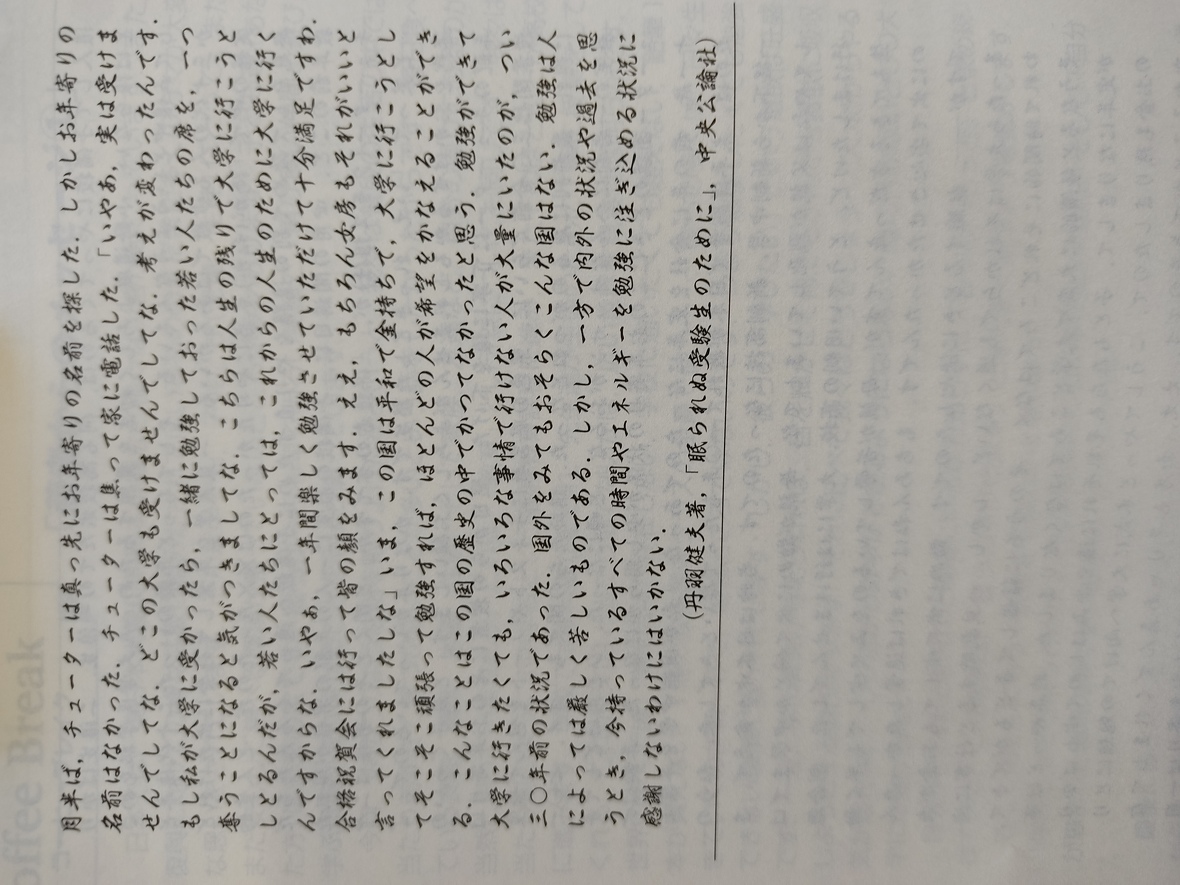 offee Break
月半ば，チューターは真っ先にお年寄りの名前を探した．しかしお年寄りの
名前はなかった．チューターは焦って家に電話した．「いやあ，実は受けま
せんでしてな．どこの大学も受けませんでしてな．考えが変わったんです．
もし私が大学に受かったら，一緒に勉強しておった若い人たちの席を，一つ
奪うことになると気がつきましてな．こちらは人生の残りで大学に行こうと
しとるんだが，若い人たちにとっては，これからの人生のために大学に行く
んですからな．いやぁ，一年間楽しく勉強させていただけて十分満足ですわ．
合格祝賀会には行って皆の顔をみます．ええ，もちろん女房もそれがいいと
言ってくれましたしな」いま，この国は平和で金持ちで，大学に行こうとし
てそこそこ頑張って勉強すれば，ほとんどの人が希望をかなえることができ
る．こんなことはこの国の歴史の中でかつてなかったと思う．勉強ができて
大学に行きたくても，いろいろな事情で行けない人が大量にいたのが，つい
三〇年前の状況であった．国外をみてもおそらくこんな国はない．勉強は人
によっては厳しく苦しいものである．しかし，一方で内外の状況や過去を思
うとき，今持っているすべての時間やエネルギーを勉強に注ぎ込める状況に
感謝しないわけにはいかない．
（丹羽健夫著，「眠られぬ受験生のために」，中央公論社）